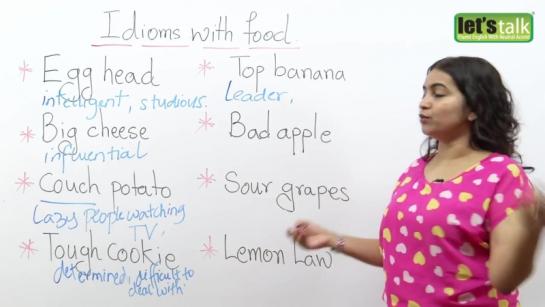 Idioms with food
let's talk
Egg head
intelligent, studious.
Big cheese
influential
Couch potato
Lazy people watching
TV,
Tough Cookie
determined, difficult to
deal with
Top banana
Leader,
Bad apple
Sour grapes
Lemon Law